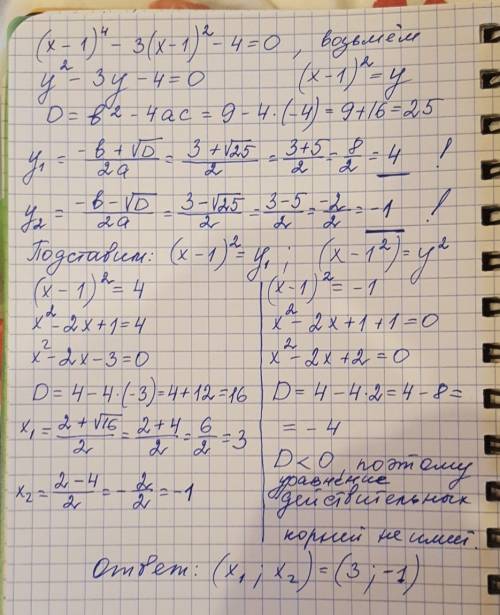 (x-1)⁴ - 3(x-1)² - 4 = 0, возьмём
y² - 3y - 4 = 0 (x-1)² = y
D = b² - 4ac = 9 - 4·(-4) = 9+16 = 25
y₁ = (-b + √D)/2a = (3 + √25)/2 = (3+5)/2 = 8/2 = 4 !
y₂ = (-b - √D)/2a = (3 - √25)/2 = (3-5)/2 = -2/2 = -1 !
Подставим: (x-1)² = y₁; (x-1²) = y²
(x-1)² = 4
x² - 2x + 1 = 4
x² - 2x - 3 = 0
D = 4 - 4·(-3) = 4+12 = 16
x₁ = (2 + √16)/2 = (2+4)/2 = 6/2 = 3
x₂ = (2-4)/2 = -2/2 = -1
(x-1)² = -1
x² - 2x + 1 + 1 = 0
x² - 2x + 2 = 0
D = 4 - 4·2 = 4 - 8 =
= -4
D < 0, поэтому
уравнение
действительных
корней не имеет.
Ответ: (x₁; x₂) = (3; -1)